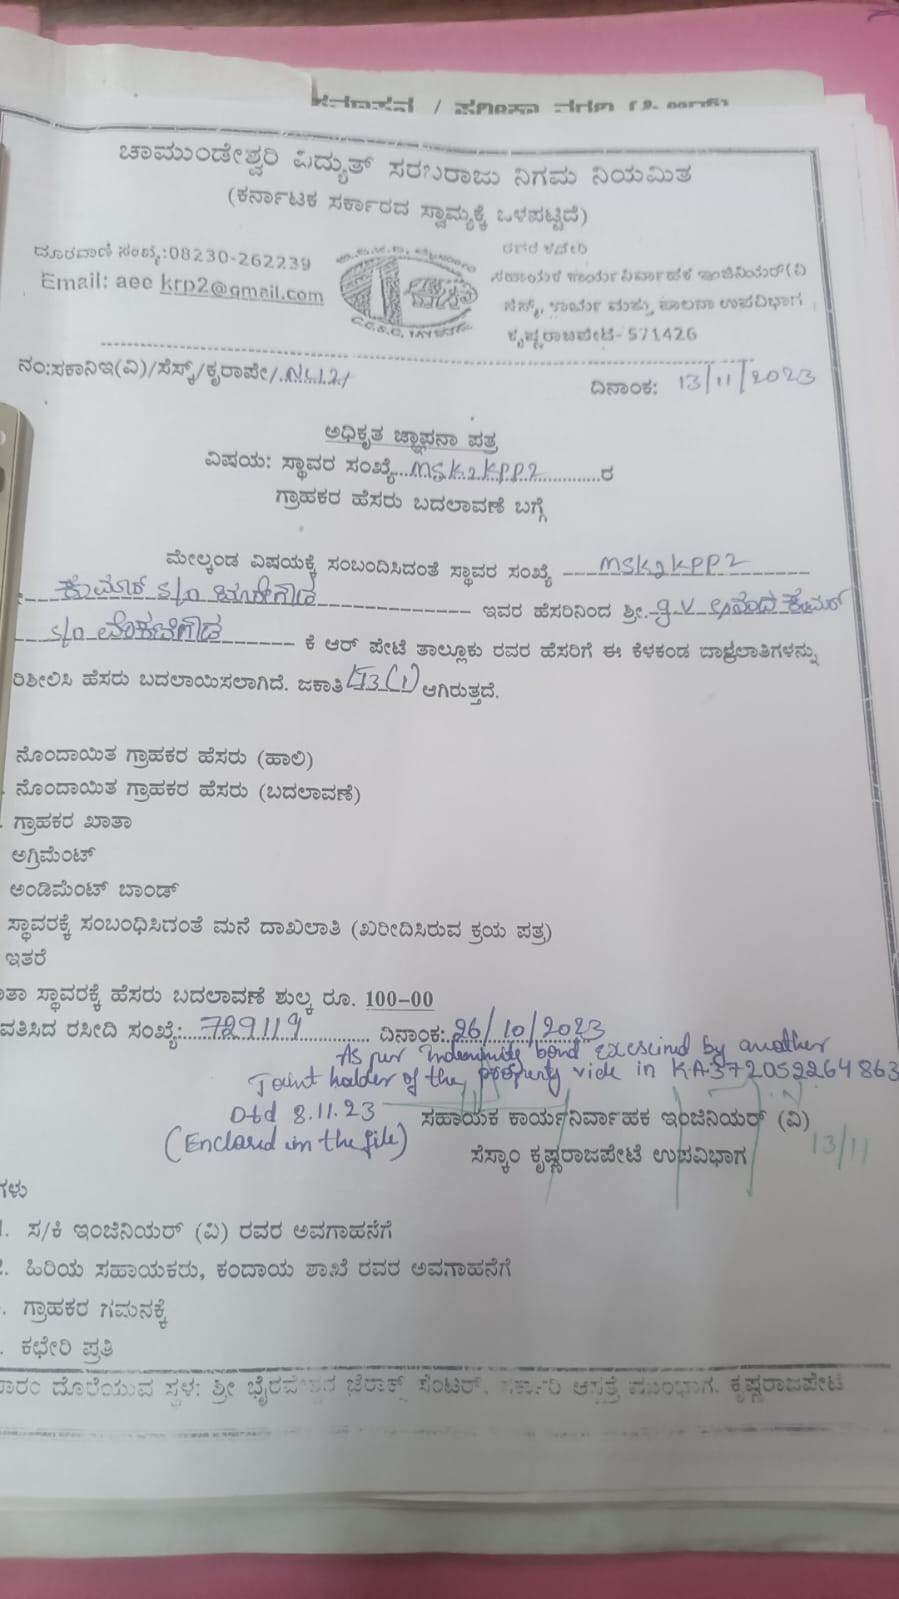 ಚಾಮುಂಡೇಶ್ವರಿ ವಿದ್ಯುತ್ ಸರಬರಾಜು ನಿಗಮ ನಿಯಮಿತ
(ಕರ್ನಾಟಕ ಸರ್ಕಾರದ ಸ್ವಾಮ್ಯಕ್ಕೆ ಒಳಪಟ್ಟಿದೆ)
ದೂರವಾಣಿ ಸಂಖ್ಯೆ:08230-262239
Email: aee krp2@gmail.com
ಸಹಾಯಕ ಕಾರ್ಯನಿರ್ವಾಹಕ ಇಂಜಿನಿಯರ್(ವಿ
ಸೆಸ್ಕ್, ಕಾರ್ಯ ಮತ್ತು ಪಾಲನಾ ಉಪವಿಭಾಗ
ಕೃಷ್ಣರಾಜಪೇಟೆ- 571426
ನಂ:ಸಕಾನಿಇ(ವಿ)/ಸೆಸ್ಕ್/ಕೃರಾಪೇ/
ದಿನಾಂಕ: 13/11/2023
ಅಧಿಕೃತ ಜ್ಞಾಪನಾ ಪತ್ರ
ವಿಷಯ: ಸ್ಥಾವರ ಸಂಖ್ಯೆ...MSK2KPP2...ರ
ಗ್ರಾಹಕರ ಹೆಸರು ಬದಲಾವಣೆ ಬಗ್ಗೆ
ಮೇಲ್ಕಂಡ ವಿಷಯಕ್ಕೆ ಸಂಬಂದಿಸಿದಂತೆ ಸ್ಥಾವರ ಸಂಖ್ಯೆ MSK2KPP2
s/o ಇವರ ಹೆಸರಿನಿಂದ ಶ್ರೀ. g.v
s/o ಕೆ ಆರ್ ಪೇಟೆ ತಾಲ್ಲೂಕು ರವರ ಹೆಸರಿಗೆ ಈ ಕೆಳಕಂಡ ದಾಖಲಾತಿಗಳನ್ನು
ರಿಶೀಲಿಸಿ ಹೆಸರು ಬದಲಾಯಿಸಲಾಗಿದೆ. ಜಕಾತಿ ಆಗಿರುತ್ತದೆ.
ನೊಂದಾಯಿತ ಗ್ರಾಹಕರ ಹೆಸರು (ಹಾಲಿ)
ನೊಂದಾಯಿತ ಗ್ರಾಹಕರ ಹೆಸರು (ಬದಲಾವಣೆ)
ಗ್ರಾಹಕರ ಖಾತಾ
ಅಗ್ರಿಮೆಂಟ್
ಅಂಡಿಮೆಂಟ್ ಬಾಂಡ್
ಸ್ಥಾವರಕ್ಕೆ ಸಂಬಂಧಿಸಿದಂತೆ ಮನೆ ದಾಖಲಾತಿ (ಖರೀದಿಸಿರುವ ಕ್ರಯ ಪತ್ರ)
ಇತರೆ
ಸ್ಥಾವರಕ್ಕೆ ಹೆಸರು ಬದಲಾವಣೆ ಶುಲ್ಕ ರೂ. 100-00
ವತಿಸಿದ ರಸೀದಿ ಸಂಖ್ಯೆ: 729119 ದಿನಾಂಕ: 26/10/2023
As per bond by another
Joint holder of the property vide in K.A.
Dtd 8.11.23 ಸಹಾಯಕ ಕಾರ್ಯನಿರ್ವಾಹಕ ಇಂಜಿನಿಯರ್ (ವಿ)
(Enclosed in the file) ಸೆಸ್ಕಾಂ ಕೃಷ್ಣರಾಜಪೇಟೆ ಉಪವಿಭಾಗ 13/11
ಗಳು
ಸ/ಕಿ ಇಂಜಿನಿಯರ್ (ವಿ) ರವರ ಅವಗಾಹನೆಗೆ
ಹಿರಿಯ ಸಹಾಯಕರು, ಕಂದಾಯ ಶಾಖೆ ರವರ ಅವಗಾಹನೆಗೆ
ಗ್ರಾಹಕರ ಗಮನಕ್ಕೆ
ಕಛೇರಿ ಪ್ರತಿ
ದೊರೆಯುವ ಸ್ಥಳ: ಶ್ರೀ ಜೆರಾಕ್ಸ್ ಸೆಂಟರ್, ಸರ್ಕಾರಿ ಆಸ್ಪತ್ರೆ ಮುಂಭಾಗ, ಕೃಷ್ಣರಾಜಪೇಟೆ